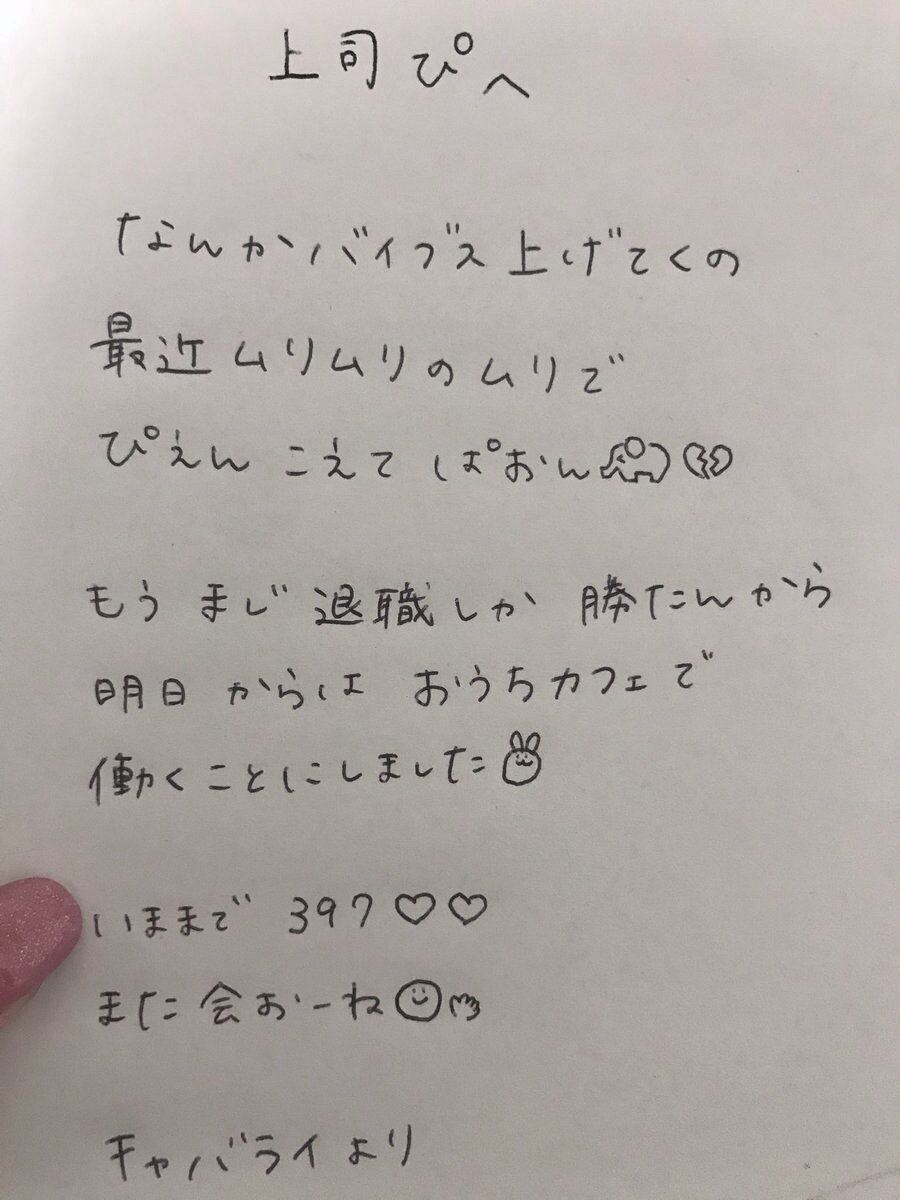 上司ぴへ
なんかバイブス上げてくの
最近ムリムリのムリで
ぴえんこえてぱおん
もうまじ退職しか勝たんから
明日からはおうちカフェで
働くことにしました
いままで397♡♡
また会おーね
キャバライより